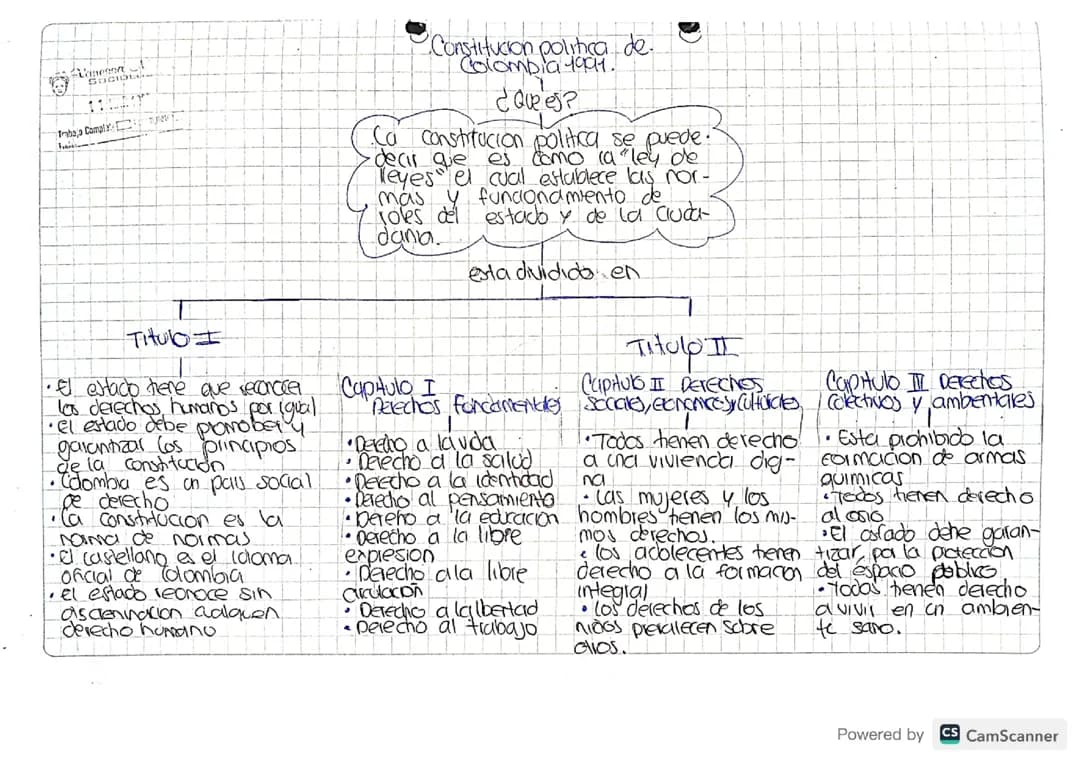 Constitucion politica de
Colombia 1991.
¿Que es?
La constitucion politica se puede
decir que es como la "ley de
leyes" el cual establece las nor-
mas y funcionamiento de
roles del estado y de la ciuda-
dania.
esta dividido en
Titulo I
• El estado tiene que reconocer
los derechos humanos por igual
• El estado debe promober y
garantizar los principios
de la constitucion
• Colombia es un pais social
de derecho
• La constitucion es la
norma de normas
• El castellano es el idioma
oficial de Colombia
• El estado reconoce sin
derecho humano
Titulo II
Capitulo I
Derechos fundamentales
• Derecho a la vida
• Derecho a la salud
• Derecho a la identidad
• Derecho al pensamiento
• Dereho a la educacion
• Derecho a la libre
expresion
• Derecho a la libre
circulacion
• Derecho a la libertad
• Derecho al trabajo
Capitulo II Derechos
sociales, economicos y culturales
• Todos tienen derecho
a una vivienda dig-
na
• Las mujeres y los
hombres tienen los mis-
mos derechos.
• los adolecentes tienen
derecho a la formacion
integral
• Los derechos de los
niños prevalecen sobre
otros.
Capitulo III Derechos
Colectivos y ambientales
• Esta prohibido la
formacion de armas
quimicas
• Todos tienen derecho
al osio
• El estado debe garan-
tizar por la proteccion
del espacio publico
• Todos tienen derecho
a vivir en un ambien-
te sano.
Powered by CS CamScanner